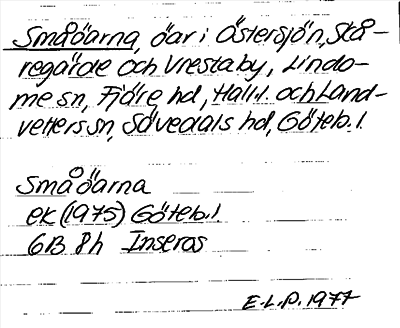 Småöarna, öar i Östersjön, Skå-
regärde och Vrestaby, Lindo-
me sn, Fjäre hd, Hall.l. och Land-
vetters sn, Sävedals hd, Göteb.l.
Småöarna
ek (1975) Göteb.l
6B 8h Inseros
E.L.P. 1977